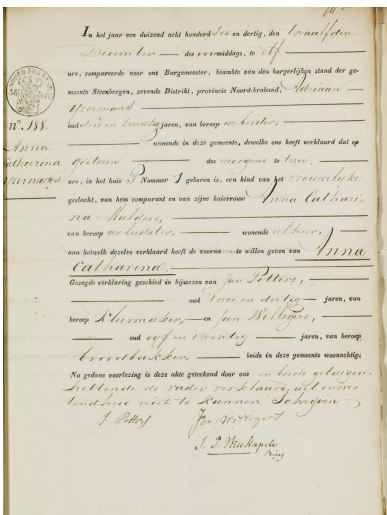 In het jaar een duizend acht honderd Zes en dertig, den twaalfden
December des voormiddags, te elf
ure, compareerde voor ons Burgemeester, beambte van den burgerlijken stand der ge-
meente Steenbergen, zevende Distrikt, provincie Noord-braband, Adriaan
oud drie en twintig jaren, van beroep arbeider,
wonende in deze gemeente, dewelke ons heeft verklaard dat op
gisteren des morgens te twee
ure, in het huis P Nummer 1 geboren is, een kind van het vrouwelijke
geslacht, van hem comparant en van zijne huisvrouw Anna Cathari-
na Mulders,
van beroep arbeidster, wonende alhier,
aan hetwelk dezelve verklaard heeft de voornamen te willen geven van Anna
Catharina.
Gezegde verklaring geschied in bijwezen van Jan Potters,
oud twee en dertig jaren, van
beroep Kleermaker, en Jan Willegers,
oud vijf en jaren, van beroep
broodbakker, beide in deze gemeente woonachtig,
Na gedane voorlezing is deze akte geteekend door ons en beide getuigen,
hebbende de vader verklaard uit onwe-
tendheid niet te kunnen schrijven
J. Potters Jan Willegers
nº. 188.
Anna
Catharina